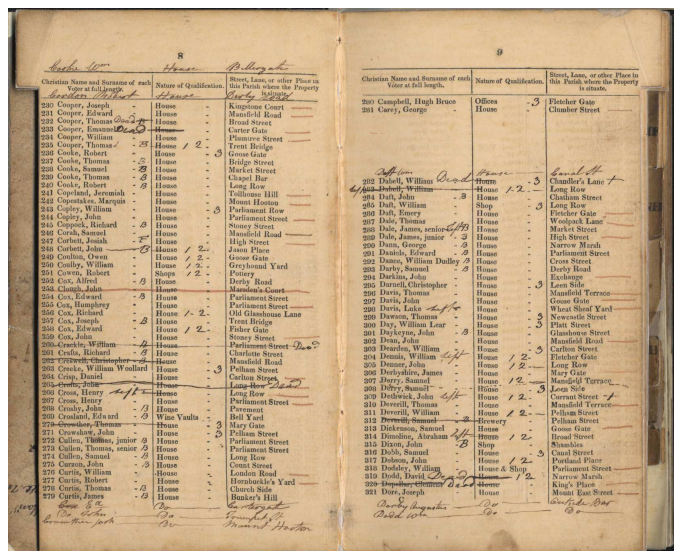 8
Cooke Wm House Bellargate
Christian Name and Surname of each Voter at full length. Nature of Qualification. Street, Lane, or other Place in this Parish where the Property is situate.
House Derby Road
230 Cooper, Joseph - House - Kingstone Court
231 Cooper, Edward - House - Mansfield Road
232 Cooper, Thomas Dead B House - Broad Street
233 Cooper, Emanuel Dead House - Carter Gate
234 Cooper, William - House - Plumtree Street
235 Cooper, Thomas B House 1 2 - Trent Bridge
236 Cooke, Robert - House - 3 Goose Gate
237 Cooke, Thomas - B House - Bridge Street
238 Cooke, Samuel - B House - Market Street
239 Cooke, Thomas - B House - Chapel Bar
240 Cooke, Robert - B House - Long Row
241 Copeland, Jeremiah - House - Tollhouse Hill
242 Copestakes, Marquis - House - Mount Hooton
243 Copley, William - House - 3 Parliament Row
244 Copley, John - House - Parliament Street
245 Coppock, Richard - B House - Stoney Street
246 Corah, Samuel - House - Mansfield Road
247 Corbett, Josiah - House - High Street
248 Corbett, John - B House 1 2 - Jason Place
249 Coulton, Owen - House 1 2 - Goose Gate
250 Coulby, William - House 1 2 - Greyhound Yard
251 Cowen, Robert - Shops 1 2 - Pottery
252 Cox, Alfred - B House - Derby Road
253 Clough, John - House - Marsden's Court
254 Cox, Edward - B House - Parliament Street
255 Cox, Humphrey - House - Parliament Street
256 Cox, Richard - House 1-2 - Old Glasshouse Lane
257 Cox, Joseph - B House - Trent Bridge
258 Cox, Edward - House 1 2 - Fisher Gate
259 Cox, John - House - Stoney Street
260 Crackle, William - B House - Parliament Street Dead
261 Crafts, Richard - B House - Charlotte Street
262 Creswell, Christopher - B House - Mansfield Road
263 Creeke, William Woollard House - 3 Pelham Street
264 Crisp, Daniel - House - Carlton Street
265 Crofts, John - House - Long Row Dead
266 Cross, Henry left House - Long Row
267 Cross, Henry - House - Parliament Street
268 Crosby, John - B House - Pavement
269 Crosland, Edward - B Wine Vaults - Bell Yard
270 Crowther, Thomas - House - 3 Mary Gate
271 Crowshaw, John - House - 3 Pelham Street
272 Cullen, Thomas, junior B House - Parliament Street
273 Cullen, Thomas, senior B House - Parliament Street
274 Cullen, Samuel - B House - Long Row
275 Curzon, John - B House - Count Street
276 Curtis, William - House - London Road
277 Curtis, Robert - House - Hornbuckle's Yard
278 Curtis, Thomas - B House - Church Side
279 Curtis, James - B House - Bunker's Hill
Do
Do John Do
Do Mount Hooton
9
Christian Name and Surname of each Voter at full length. Nature of Qualification. Street, Lane, or other Place in this Parish where the Property is situate.
280 Campbell, Hugh Bruce Offices - 3 Fletcher Gate
281 Carey, George - House - Clumber Street
Daft Wm House Canal St
282 Dabell, William Dead House - 3 Chandler's Lane
283 Dabell, William - House 1-2 - Long Row
284 Daft, John - B House - Chatham Street
285 Daft, William - Shop - 3 Long Row
286 Daft, Emery - House - Fletcher Gate
287 Dale, Thomas - House - Woolpack Lane
288 Dale, James, senior left B House - Market Street
289 Dale, James, junior - B House - High Street
290 Dann, George - B House - Narrow Marsh
291 Daniels, Edward - B House - Parliament Street
292 Dance, William Dudley B House - Cross Street
293 Darby, Samuel - B House - Derby Road
294 Darkins, John - House - Exchange
295 Darnell, Christopher - House - 3 Leen Side
296 Davis, Thomas - House - Mansfield Terrace
297 Davis, John - House - Goose Gate
298 Davis, Luke left House - Wheat Sheaf Yard
299 Dawson, Thomas - House - 3 Newcastle Street
300 Day, William Lear - House - 3 Platt Street
301 Daykeyne, John - B House - Glasshouse Street
302 Dean, John - House - Mansfield Road
303 Dearden, William - House - 3 Carlton Street
304 Dennis, William left House 1 2 - Fletcher Gate
305 Denner, John - House 1 2 - Long Row
306 Derbyshire, James - House - Mary Gate
307 Derry, Samuel - House 1 2 - Mansfield Terrace
308 Derry, Samuel - House - 3 Leen Side
309 Dethwick, John left House 1 2 - Currant Street
310 Deverill, Thomas - House - Mansfield Terrace
311 Deverill, William - House 1 2 - Pelham Street
312 Deverill, Samuel - B Brewery - Pelham Street
313 Dickenson, Samuel - House - Goose Gate
314 Dimoline, Abraham left House 1 2 - Broad Street
315 Dixon, John - B Shop - Shambles
316 Dobb, Samuel - House - 3 Canal Street
317 Dobson, John - House 1 2 - Portland Place
318 Dodsley, William - House & Shop - Parliament Street
319 Dodd, David Dead House 1 2 - Narrow Marsh
320 Dead House - King's Place
321 Dore, Joseph - House - Mount East Street
Darby Augustus Do Do
Dodd Wm Do Do